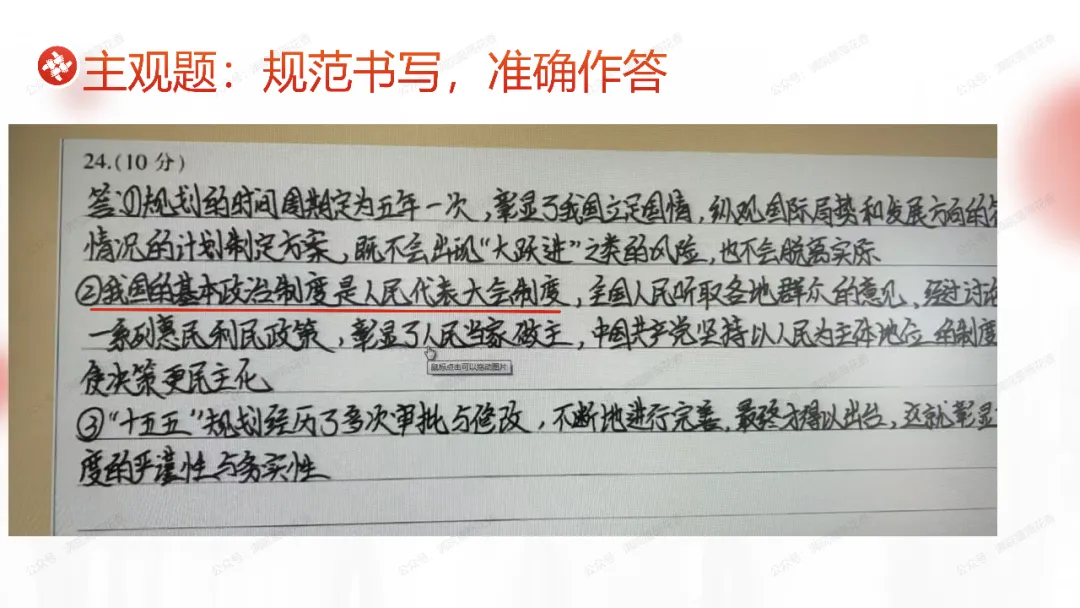 主观题：规范书写，准确作答
24.(10 分)
答:①规划的时间周期定为五年一次，彰显了我国立足国情，纵观国际局势和发展方向的
情况的计划制定方案，既不会出现“大跃进”之类的风险，也不会脱离实际
②我国的基本政治制度是人民代表大会制度，全国人民听取各地群众的意见，经过讨论
一系列惠民利民政策，彰显了人民当家做主，中国共产党坚持以人民为主体地位 的制度
使决策更民主化
鼠标点击可以拖动图片
③“十五五”规划经历了多次审批与修改，不断地进行完善，最终才得以出台，这就彰显
度的严谨性与务实性